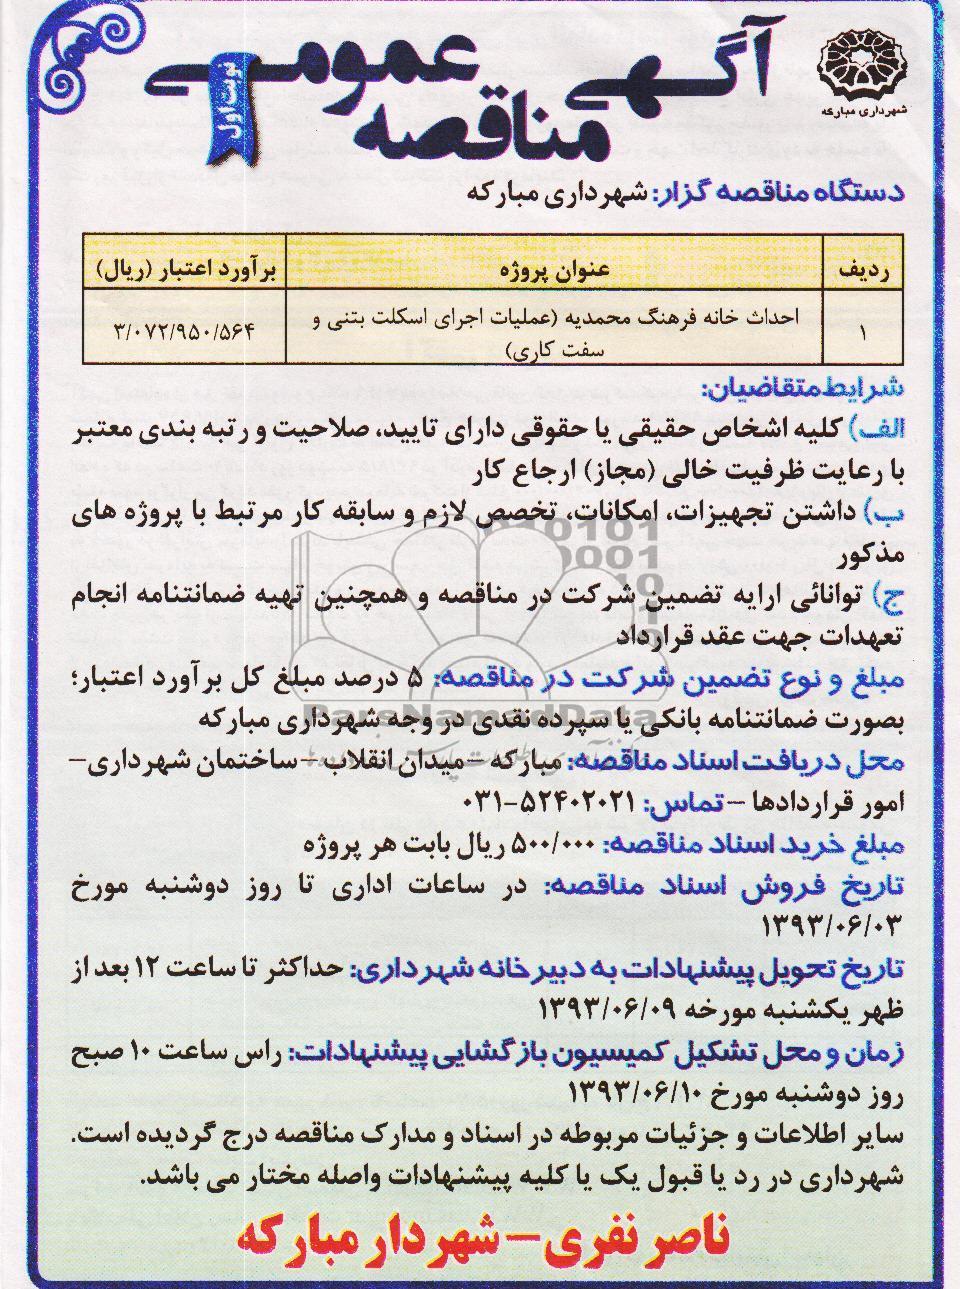 آگهی
عمومی
مناقصه
نوبت اول
شهرداری مبارکه
دستگاه مناقصه گزار: شهرداری مبارکه
ردیف عنوان پروژه برآورد اعتبار (ریال)
۱ احداث خانه فرهنگ محمدیه (عملیات اجرای اسکلت بتنی و ۳/۰۷۲/۹۵۰/۵۶۴
سفت کاری)
شرایط متقاضیان:
الف) کلیه اشخاص حقیقی یا حقوقی دارای تایید، صلاحیت و رتبه بندی معتبر
با رعایت ظرفیت خالی (مجاز) ارجاع کار
ب) داشتن تجهیزات، امکانات، تخصص لازم و سابقه کار مرتبط با پروژه های
مذکور
ج) توانائی ارایه تضمین شرکت در مناقصه و همچنین تهیه ضمانتنامه انجام
تعهدات جهت عقد قرارداد
مبلغ و نوع تضمین شرکت در مناقصه: ۵ درصد مبلغ کل برآورد اعتبار؛
بصورت ضمانتنامه بانکی یا سپرده نقدی در وجه شهرداری مبارکه
ParsNamadData
محل دریافت اسناد مناقصه: مبارکه – میدان انقلاب – ساختمان شهرداری –
امور قراردادها – تماس: ۵۲۴۰۲۰۲۱-۰۳۱
مبلغ خرید اسناد مناقصه: ۵۰۰/۰۰۰ ریال بابت هر پروژه
تاریخ فروش اسناد مناقصه: در ساعات اداری تا روز دوشنبه مورخ
۱۳۹۳/۰۶/۰۳
تاریخ تحویل پیشنهادات به دبیرخانه شهرداری: حداکثر تا ساعت ۱۲ بعد از
ظهر یکشنبه مورخه ۱۳۹۳/۰۶/۰۹
زمان و محل تشکیل کمیسیون بازگشایی پیشنهادات: راس ساعت ۱۰ صبح
روز دوشنبه مورخ ۱۳۹۳/۰۶/۱۰
سایر اطلاعات و جزئیات مربوطه در اسناد و مدارک مناقصه درج گردیده است.
شهرداری در رد یا قبول یک یا کلیه پیشنهادات واصله مختار می باشد.
ناصر نفری – شهردار مبارکه